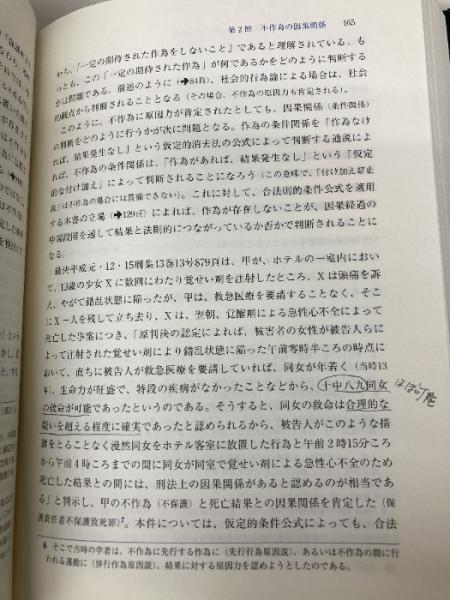 第2節 不作為の因果関係 165
わち、「一定の期待された作為をしないこと」であると理解されている。も
っとも、この「一定の期待された作為」が何であるかをどのように判断する
かは問題である。前述のように(➔84頁)、社会的行為論による場合は、社会
的観点から判断されることとなる(その場合、不作為の原因力も肯定される)。
このように、不作為に原因力が肯定されたとしても、因果関係(条件関係)
の判断をどのように行うかが次に問題となる。作為の条件関係を「作為なけ
れば、結果発生なし」という仮定的消去法の公式によって判断する通説によ
れば、不作為の条件関係は、「作為があれば、結果発生なし」という「仮定
的な付け加え」によって判断されることになろう(この意味で、「付け加え禁止
説」は不作為の場合には貫徹できない)。これに対して、合法則的条件公式を適用
する本書の立場(➔129頁)によれば、作為が存在しないことが、因果経過の
中間段階を通して結果と法則的につながっているか否かで判断されることに
なる。
最決平成元・12・15刑集13巻13号879頁は、甲が、ホテルの一室内におい
て、13歳の少女Xに数回にわたり覚せい剤を注射したところ、Xは頭痛を訴
え、やがて錯乱状態に陥ったが、甲は、救急医療を要請することなく、そこ
にX一人を残して立ち去り、Xは、翌朝、覚醒剤による急性心不全によって
死亡した事案につき、「原判決の認定によれば、被害者の女性が被告人らに
よって注射された覚せい剤により錯乱状態に陥った午前零時半ころの時点に
おいて、直ちに被告人が救急医療を要請していれば、同女が年若く(当時13
年)、生命力が旺盛で、特段の疾病がなかったことなどから、十中八九同女
の救命が可能であったというのである。そうすると、同女の救命は合理的な
疑いを超える程度に確実であったと認められるから、被告人がこのような措
置をとることなく漫然同女をホテル客室に放置した行為と午前2時15分ころ
から午前4時ころまでの間に同女が同室で覚せい剤による急性心不全のため
死亡した結果との間には、刑法上の因果関係があると認めるのが相当であ
る」と判示し、甲の不作為(不保護)と死亡結果との因果関係を肯定した(保
護責任者不保護致死罪)7。本件については、仮定的条件公式によっても、合法
6 そこで当時の学者は、不作為に先行する作為に(先行行為原因説)、あるいは不作為の間に行
われる運動に(併行作為原因説)、結果に対する原因力を認めようとしたのである。
ほぼ可能